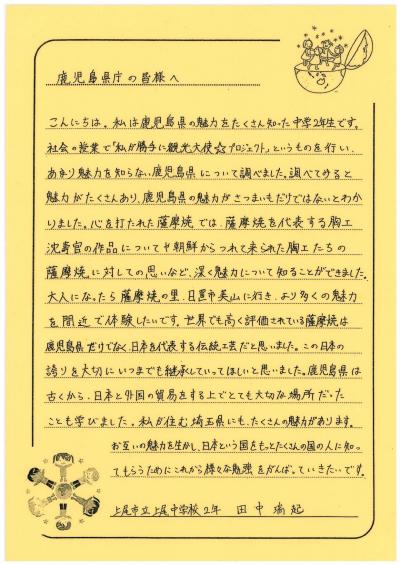 鹿児島県庁の皆様へ
こんにちは。私は鹿児島県の魅力をたくさん知った中学2年生です。
社会の授業で「私が勝手に観光大使☆プロジェクト」というものを行い、
あまり魅力を知らない鹿児島県について調べました。調べてみると
魅力がたくさんあり、鹿児島県の魅力がさつまいもだけではないとわか
りました。心を打たれた薩摩焼では、薩摩焼を代表する陶工
沈壽官の作品についてや朝鮮からつれて来られた陶工たちの
薩摩焼に対しての思いなど、深く魅力について知ることができました。
大人になったら薩摩焼の里、日置市美山に行き、より多くの魅力
を間近で体験したいです。世界でも高く評価されている薩摩焼は
鹿児島県だけでなく、日本を代表する伝統工芸だと思いました。この日本の
誇りを大切にいつまでも継承していってほしいと思いました。鹿児島県は
古くから、日本と外国の貿易をする上でとても大切な場所だった
ことも学びました。私が住む埼玉県にも、たくさんの魅力があります。
お互いの魅力を生かし、日本という国をもっとたくさんの国の人に知っ
てもらうためにこれから様々な勉強をがんばっていきたいです。
上尾市立上尾中学校2年 田中瑞起